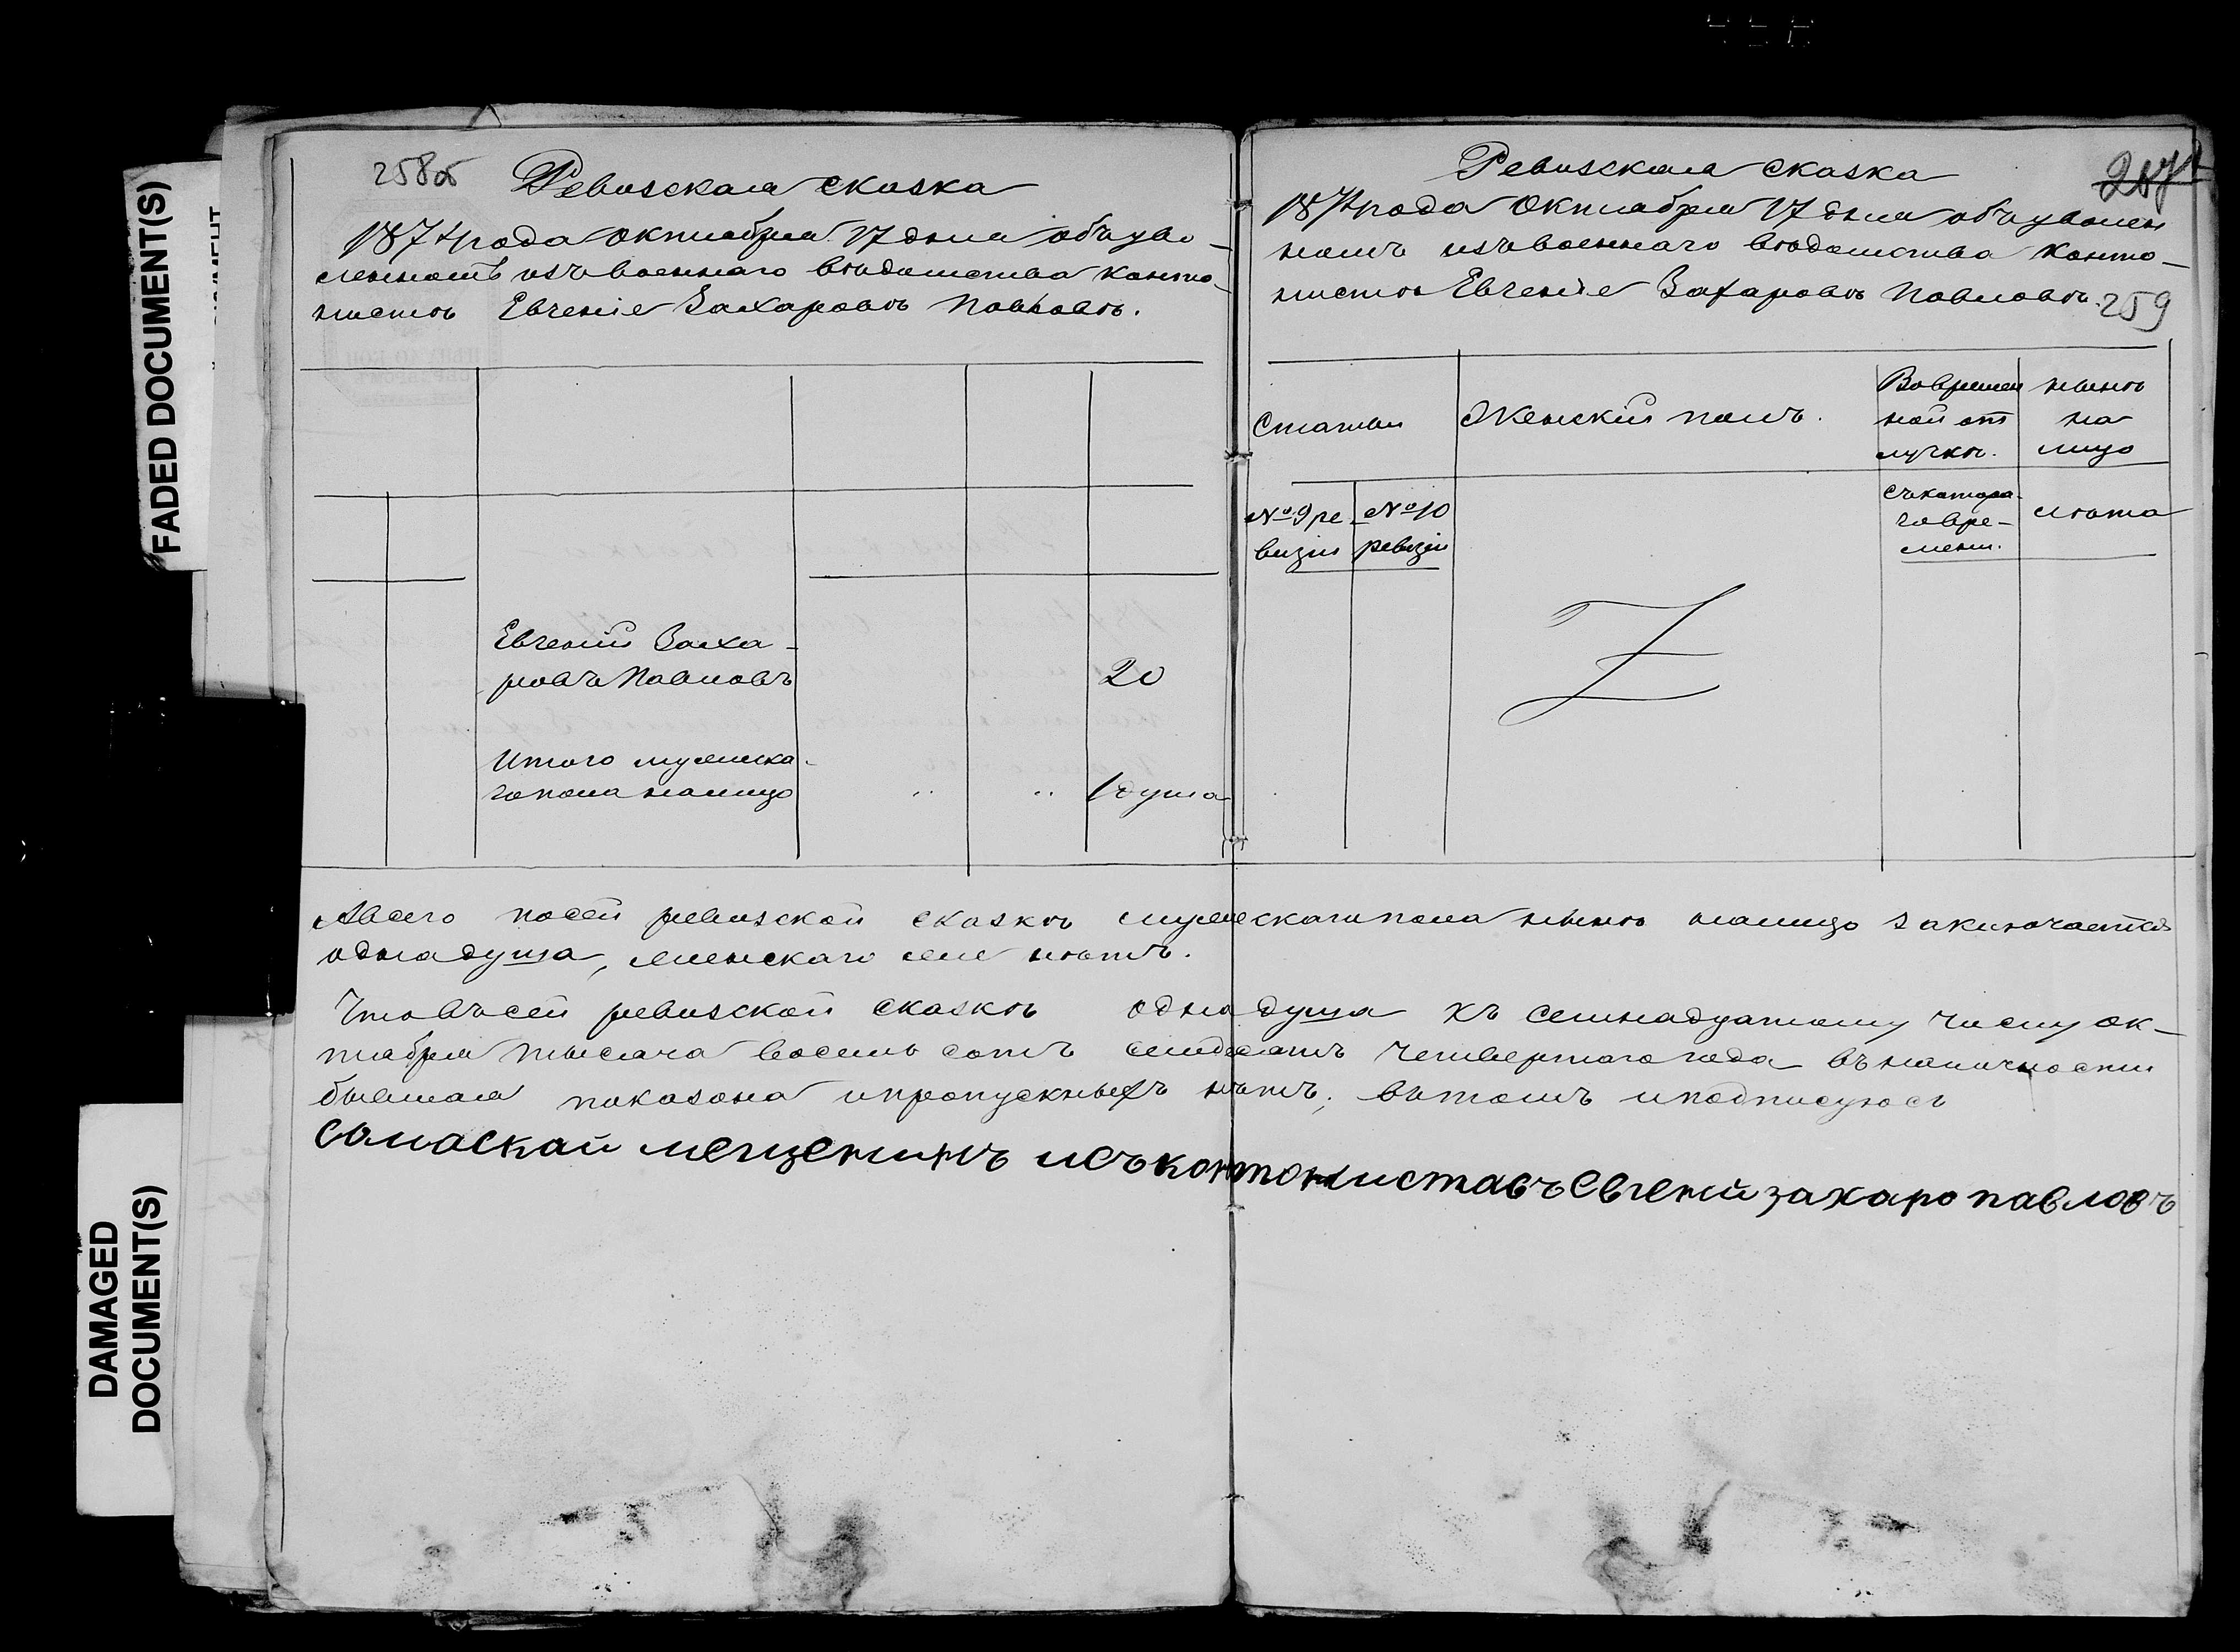 FADED DOCUMENT(S)
DAMAGED
DOCUMENT(S)
258об
Ревизская сказка
1874 года октября 17 дня объ уво-
ленномъ изъ военнаго вѣдомства Канто-
нистѣ Евгеніе Захаровѣ Павловѣ.
Евгеній Заха-
ровъ Павловъ
20
Итого мужеска-
го пола налицо
"
"
1 душа
Ревизская сказка
1874 года Октября 17 дня объ уволен
номъ изъ военнаго вѣдомства Канто-
нистѣ Евгеніе Захаровѣ Павловѣ.
259
Статьи
Женскій полъ.
Во времен
ной от
лучкѣ.
нынѣ
на
лицо
№ 9 ре
визіи
№ 10
ревизіи
съ котора-
го вре-
мени.
лѣта
А всего по сей ревизской сказкѣ мужескаго пола нынѣ налицо заключается
одна душа, женскаго же нѣтъ.
Что въ сей ревизской сказкѣ одна душа къ семнадцатому числу ок-
тября тысяча восемь сотъ семдесятъ четвертаго года въ наличности
бывшая показана и пропускныхъ нѣтъ; въ томъ и подписуюсь
мещенинъ исъ контониставъ Евгений захаро павловъ